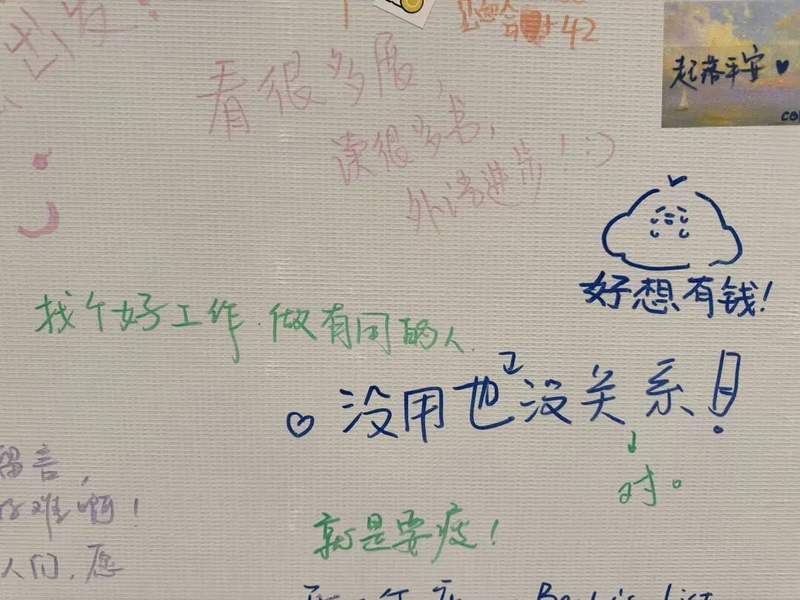 42
起落平安
看很多展,
读很多书,
外语进步!:)
好想有钱!
找个好工作.做有同的人.
♡ 没用也没关系!
对。
留言,
好难啊!
人们,愿
就是要疯!